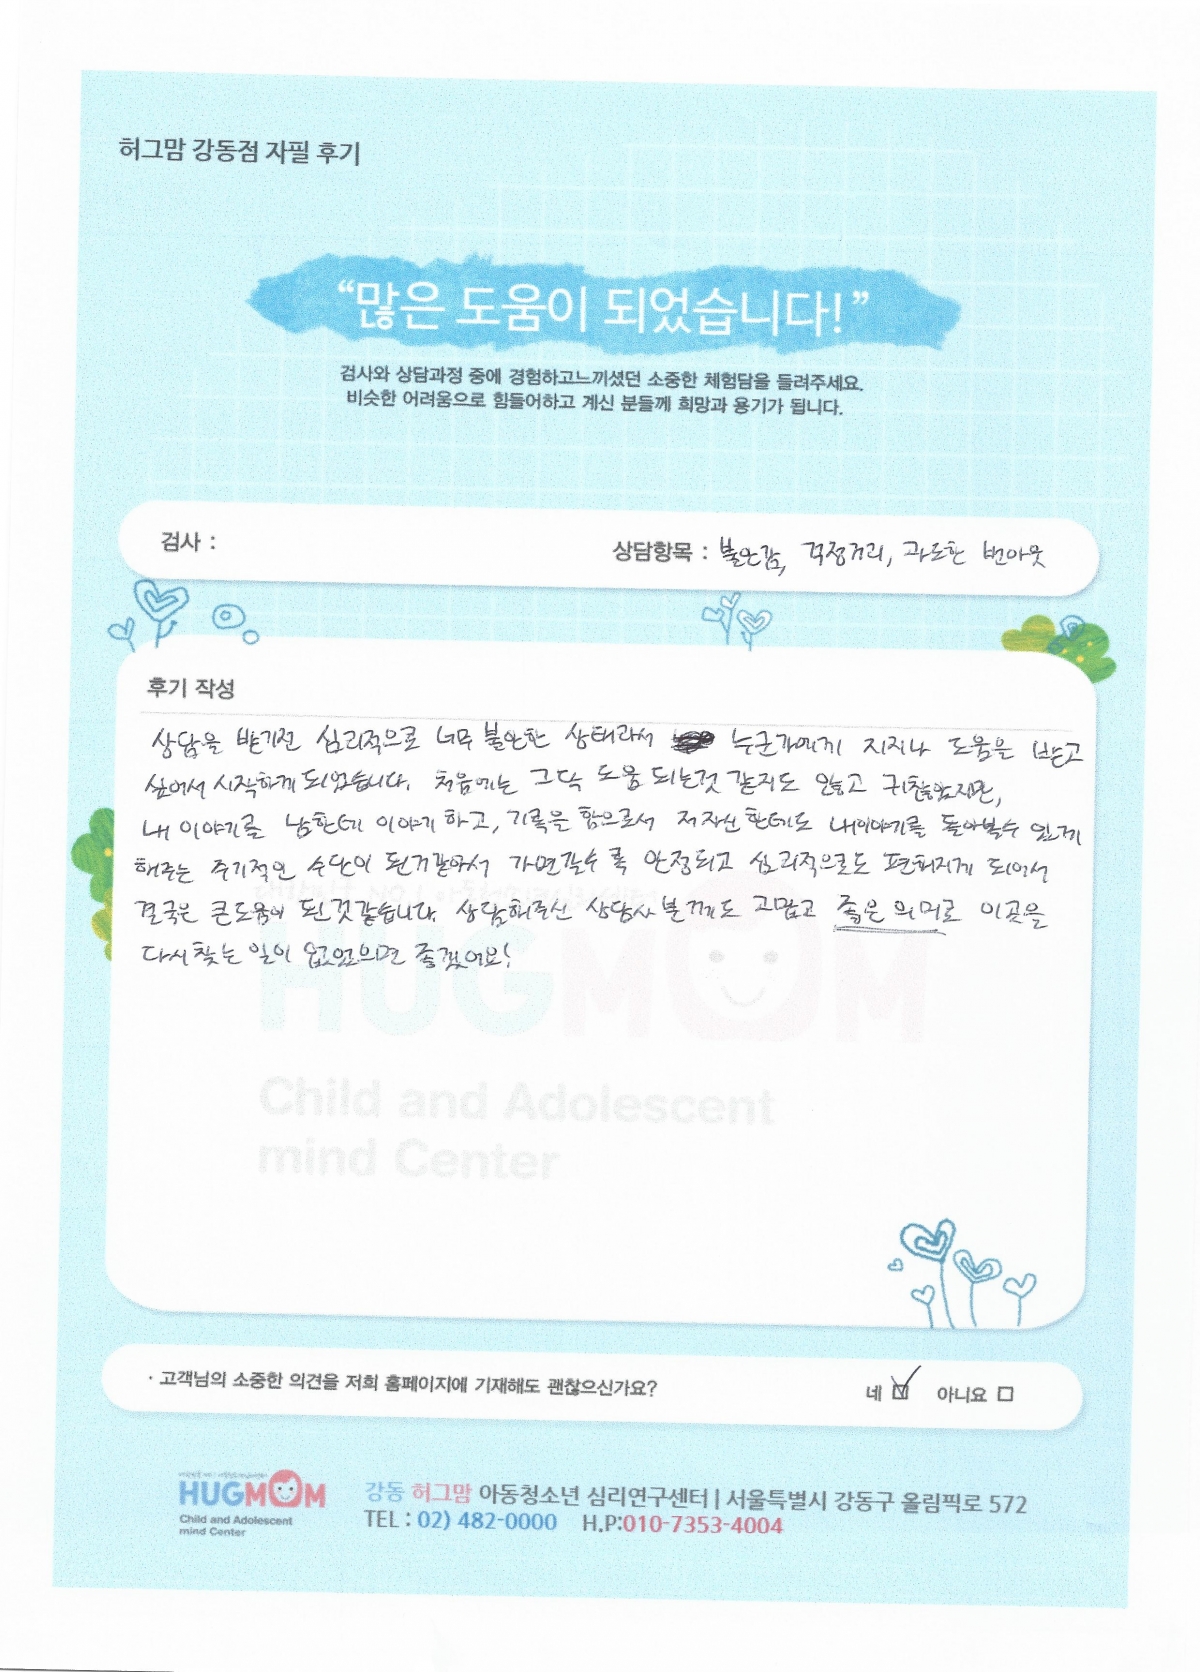 허그맘 강동점 자필 후기
“많은 도움이 되었습니다!”
검사와 상담과정 중에 경험하고느끼셨던 소중한 체험담을 들려주세요.
비슷한 어려움으로 힘들어하고 계신 분들께 희망과 용기가 됩니다.
검사 :
상담항목 : 불안감, 걱정거리, 과도한 번아웃
후기 작성
상담을 받기전 심리적으로 너무 불안한 상태라서 누군가에게 지지나 도움을 받고
싶어서 시작하게 되었습니다. 처음에는 그닥 도움 되는것 같지도 않고 귀찮았지만,
내 이야기를 남한테 이야기 하고, 기록을 함으로서 저자신한테도 내이야기를 돌아볼수 있게
해주는 주기적인 수단이 된거같아서 가면갈수록 안정되고 심리적으로도 편해지게 되어서
결국은 큰도움이 된것같습니다. 상담해주신 상담사 분께도 고맙고 좋은 의미로 이곳을
다시찾는 일이 없었으면 좋겠어요!
HUGMOM
Child and Adolescent
mind Center
· 고객님의 소중한 의견을 저희 홈페이지에 기재해도 괜찮으신가요? 네 ☑ 아니요 □
HUGMOM
Child and Adolescent
mind Center
강동 허그맘 아동청소년 심리연구센터 | 서울특별시 강동구 올림픽로 572
TEL : 02) 482-0000 H.P:010-7353-4004